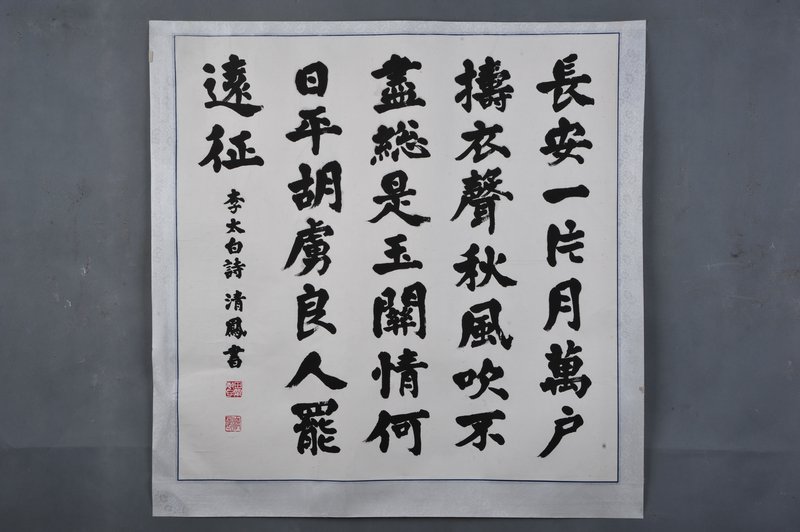 長安一片月萬户
擣衣聲秋風吹不
盡総是玉關情何
日平胡虜良人罷
遠征
李太白詩 清鳳書